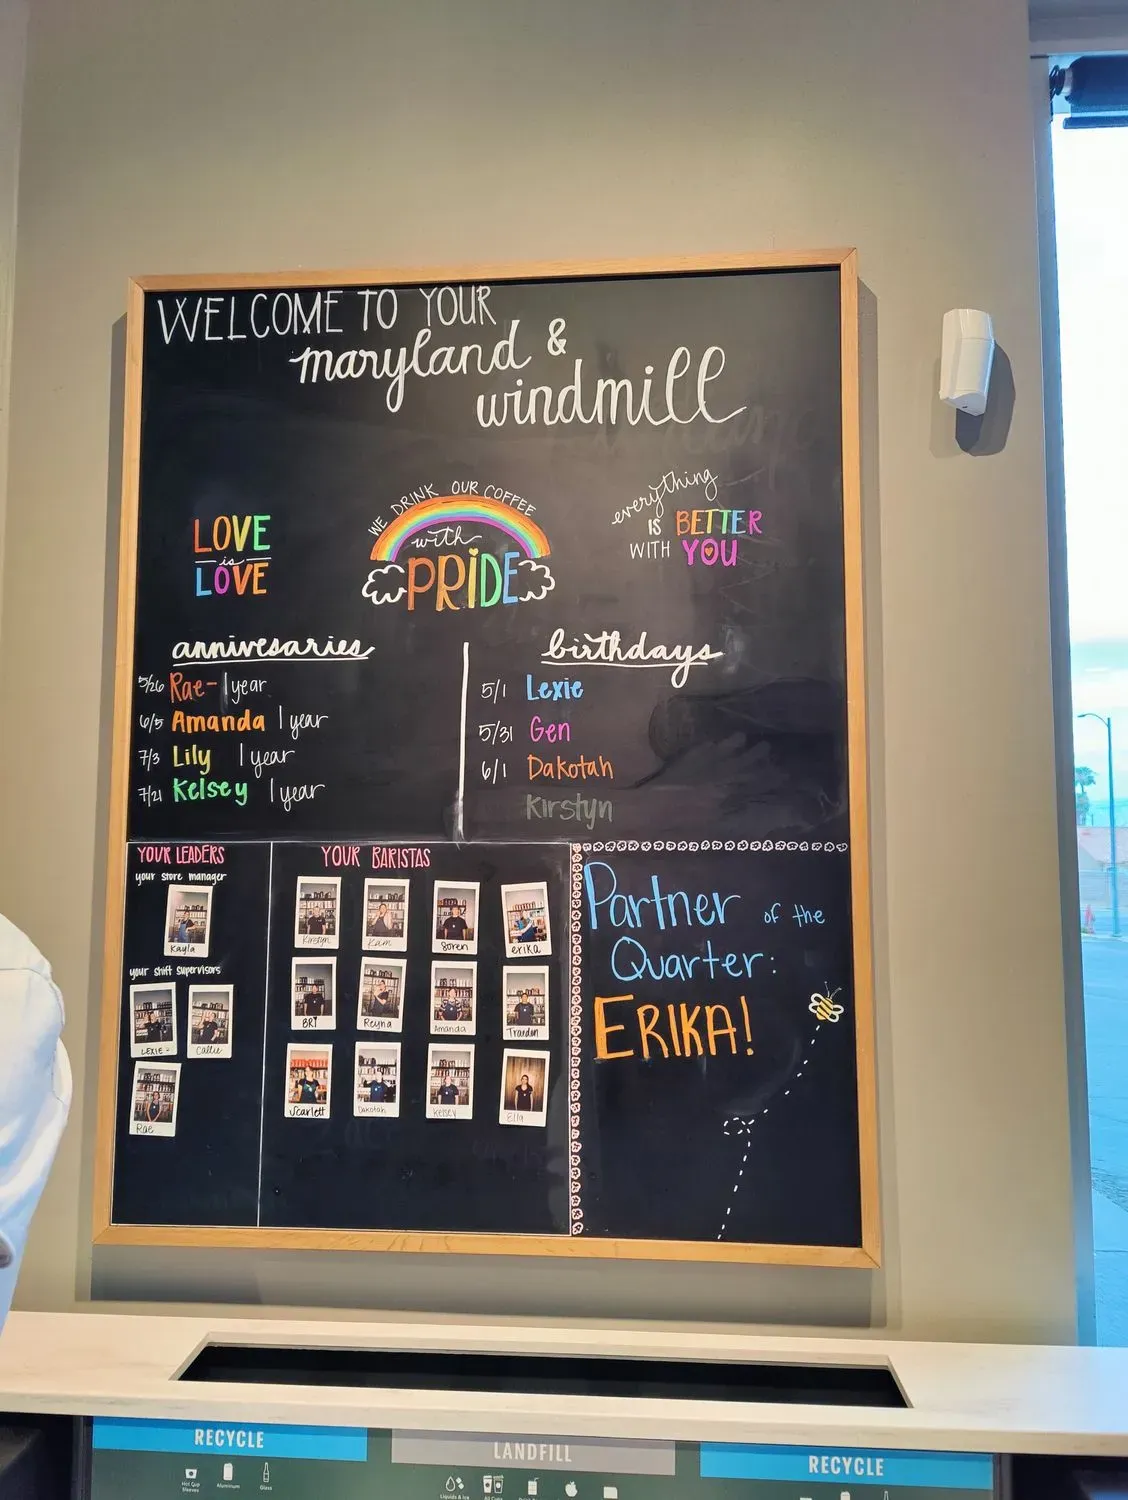 WELCOME TO YOUR
maryland &
windmill
LOVE
is
LOVE
WE DRINK OUR COFFEE
with
PRIDE
everything
IS BETTER
WITH YOU
annivesaries
5/26 Rae - 1 year
6/5 Amanda 1 year
7/3 Lily 1 year
7/21 Kelsey 1 year
birthdays
5/1 Lexie
5/31 Gen
6/1 Dakotah
Kirstyn
YOUR LEADERS
your store manager
Kayla
your shift supervisors
LEXIE
Callie
Rae
YOUR BARISTAS
Kirstyn
Kam
Soren
erika
BRI
Reyna
Amanda
Scarlett
Dakotah
Kelsey
Ella
Partner of the
Quarter:
ERIKA!
RECYCLE
Hot Cup
Sleeves
Aluminum
Glass
LANDFILL
Liquids & Ice
RECYCLE